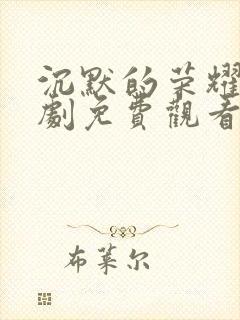 沉默的荣耀
劇免費觀看
布莱尔